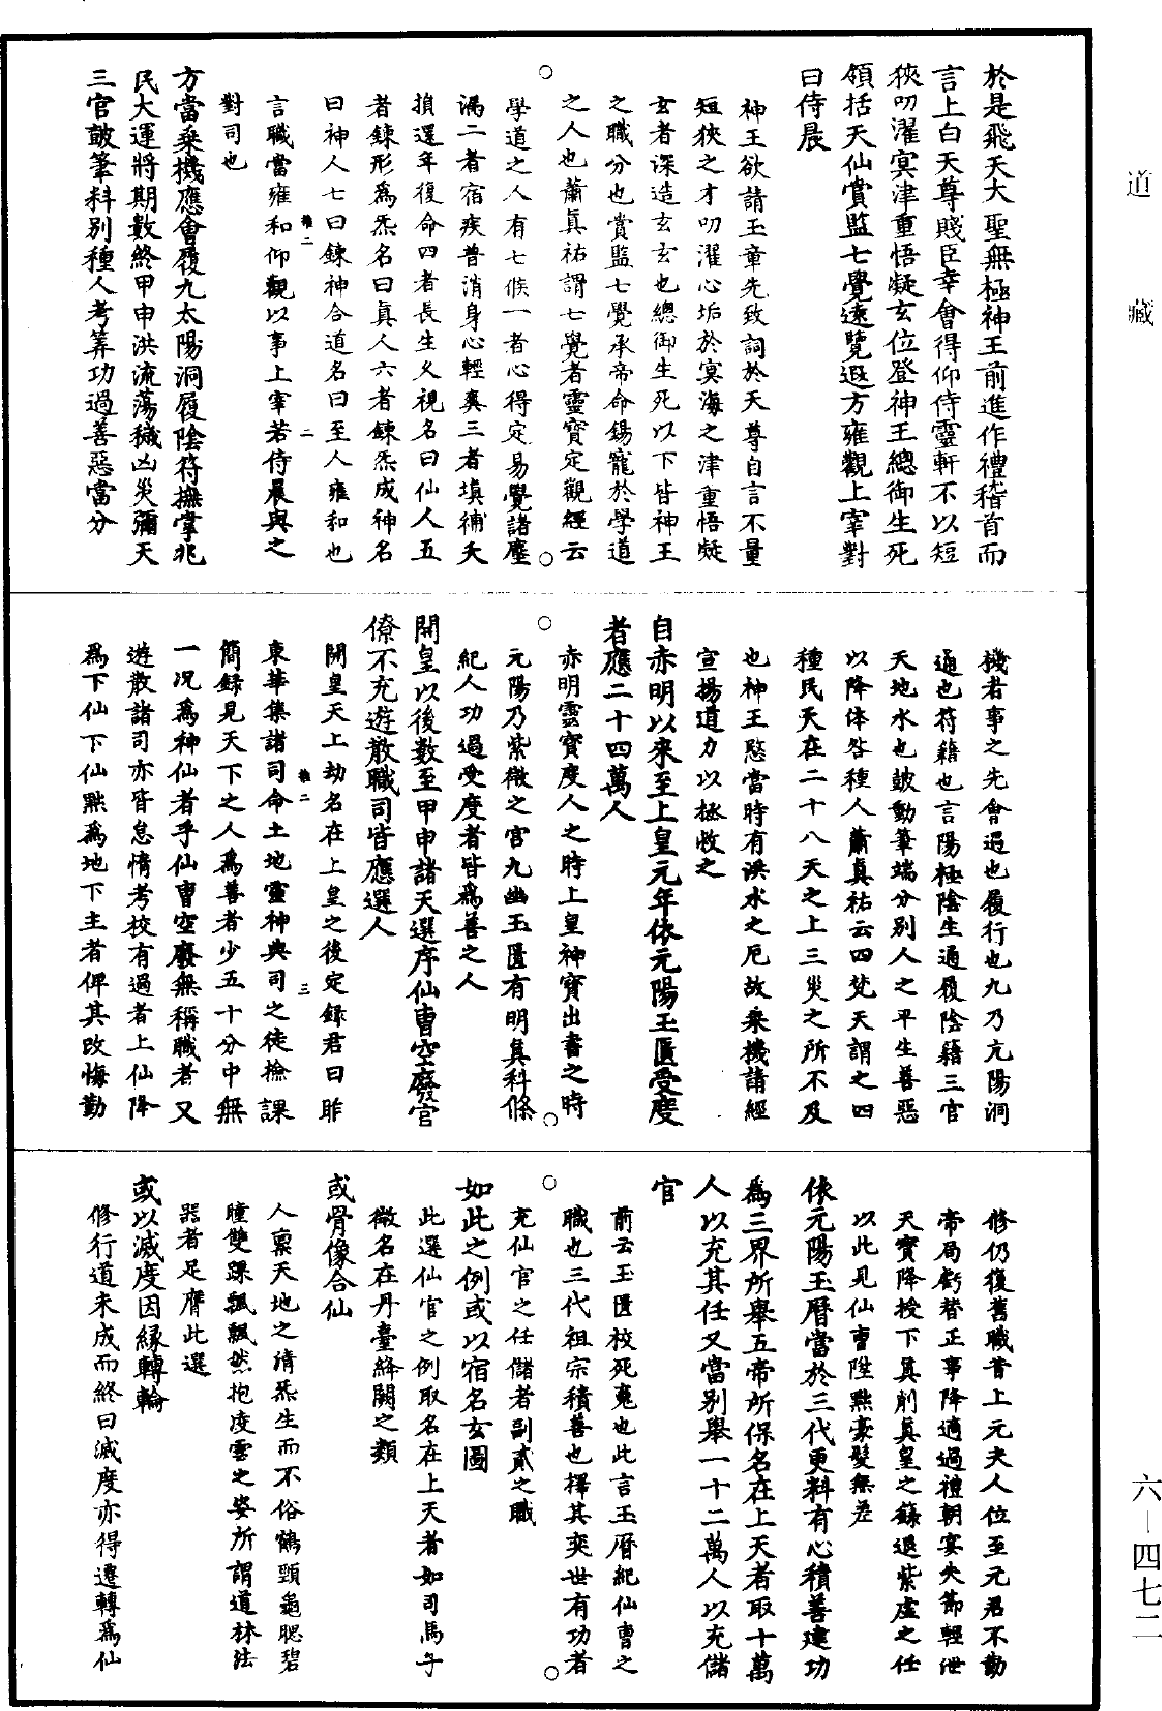 於是飛天大聖無極神王前進作禮稽首而
言上白天尊賤臣幸會得仰侍靈軒不以短
狹叨濯冥津重悟凝玄位登神王總御生死
領括天仙賞監七覺遠覽遐方雍觀上宰對
曰侍晨
神王欲請玉章先致詞於天尊自言不量
短狹之才叨濯心垢於冥海之津重悟凝
玄者深造玄玄也總御生死以下皆神王
之職分也賞監七覺承帝命錫寵於學道
之人也蕭真祐謂七覺者靈寶定觀經云
學道之人有七候一者心得定易覺諸塵
漏二者宿疾普消身心輕爽三者填補夭
損還年復命四者長生久視名曰仙人五
者鍊形為炁名曰真人六者鍊炁成神名
曰神人七曰鍊神合道名曰至人雍和也
言職當雍和仰觀以事上宰若侍晨與之
對司也
方當乘機應會履九太陽洞履陰符撫掌兆
民大運將期數終甲申洪流蕩穢凶災彌天
三官皷筆料別種人考筭功過善惡當分
機者事之先會遇也履行也九乃亢陽洞
通也符籍也言陽極陰生通履陰籍三官
天地水也皷動筆端分別人之平生善惡
以降休咎種人蕭真祐云四梵天謂之四
種民天在二十八天之上三災之所不及
也神王愍當時有洪水之厄故乘機請經
宣揚道力以拯救之
自赤明以來至上皇元年依元陽玉匱受度
者應二十四萬人
赤明靈寶度人之時上皇神寶出書之時
元陽乃紫微之宮九幽玉匱有明真科條
紀人功過受度者皆為善之人
開皇以後數至甲申諸天選序仙曹空廢官
僚不充遊散職司皆應選人
開皇天上劫名在上皇之後定錄君曰昨
東華集諸司命土地靈神典司之徒檢課
簡錄見天下之人為善者少五十分中無
一况為神仙者乎仙曹空廢無稱職者又
遊散諸司亦皆怠惰考校有過者上仙降
為下仙下仙黜為地下主者俾其改悔勤
修仍復舊職昔上元夫人位至元君不勤
帝局虧替正事降適過禮朝宴失節輕泄
天寶降授下真削真皇之籙退紫虛之任
以此見仙曹陞黜豪髮無差
依元陽玉曆當於三代更料有心積善建功
為三界所舉五帝所保名在上天者取十萬
人以充其任又當別舉一十二萬人以充儲
官
前云玉匱校死嵬也此言玉曆紀仙曹之
職也三代祖宗積善也擇其奕世有功者
充仙官之任儲者副貳之職
如此之例或以宿名玄圖
此選仙官之例取名在上天者如司馬子
微名在丹臺絳闕之類
或骨像合仙
人稟天地之清炁生而不俗鶴頸龜腮碧
瞳雙踝飄飄然抱凌雲之姿所謂道林法
器者足膺此選
或以滅度因緣轉輪
修行道未成而終曰滅度亦得遷轉為仙
雑二
二
雑二
三
道藏
六—四七二